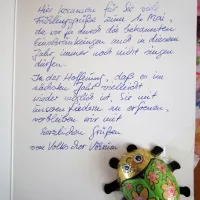 Hier kommen für Sie viele
Frühlingsgrüße zum 1. Mai,
da wir ja durch die bekannten
Einschränkungen auch in diesem
Jahr immer noch nicht singen
dürfen.
In der Hoffnung, daß es im
nächsten Jahr vielleicht
wieder möglich ist, Sie mit
unseren Liedern zu erfreuen,
verbleiben wir mit
herzlichen Grüßen
vom Volkschor